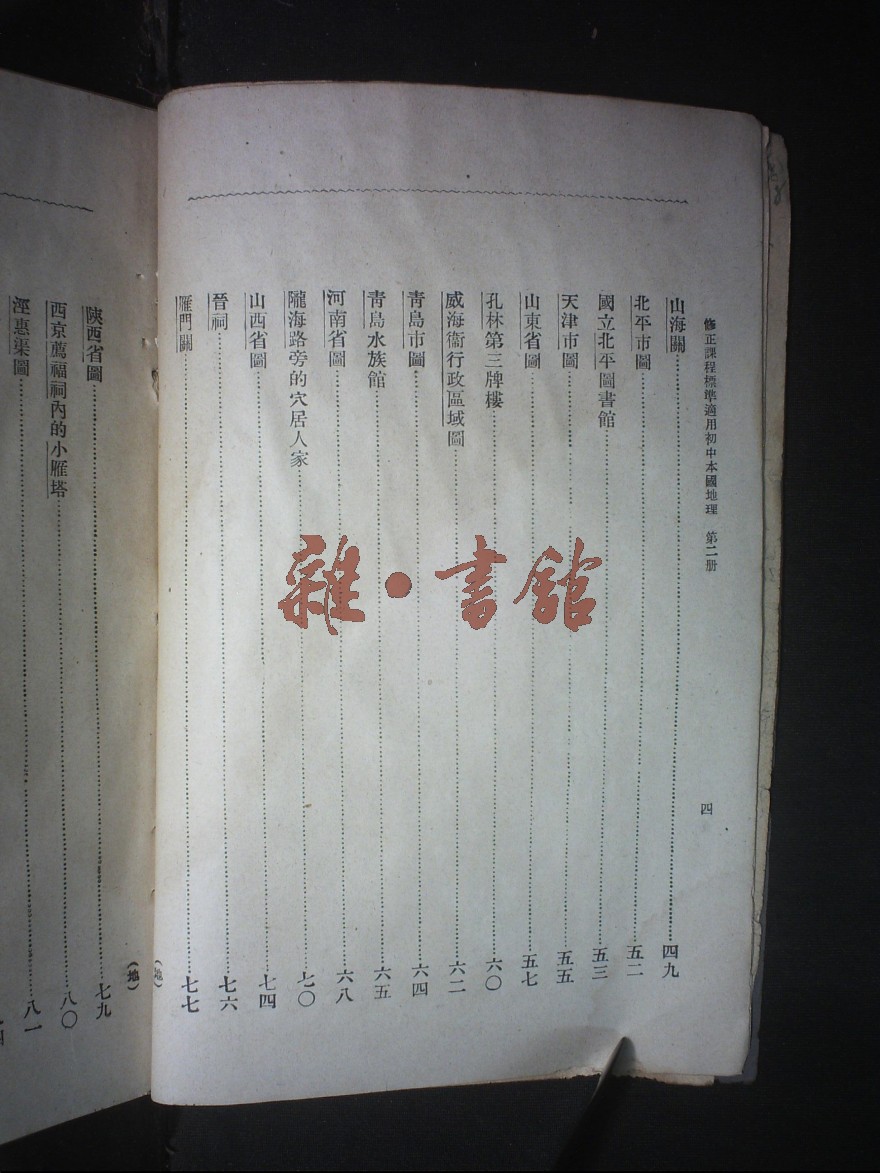 修正課程標準適用初中本國地理　第二册
四
山海關……四九
北平市圖……五二
國立北平圖書館……五三
天津市圖……五五
山東省圖……五七
孔林第三牌樓……六〇
威海衞行政區域圖……六二
青島市圖……六四
青島水族館……六五
河南省圖……六八
隴海路旁的穴居人家……七〇
山西省圖……七四
晉祠……七六
雁門關……七七
(地)
(地)
陝西省圖……七九
西京薦福祠內的小雁塔……八〇
涇惠渠圖……八一
雜·書館